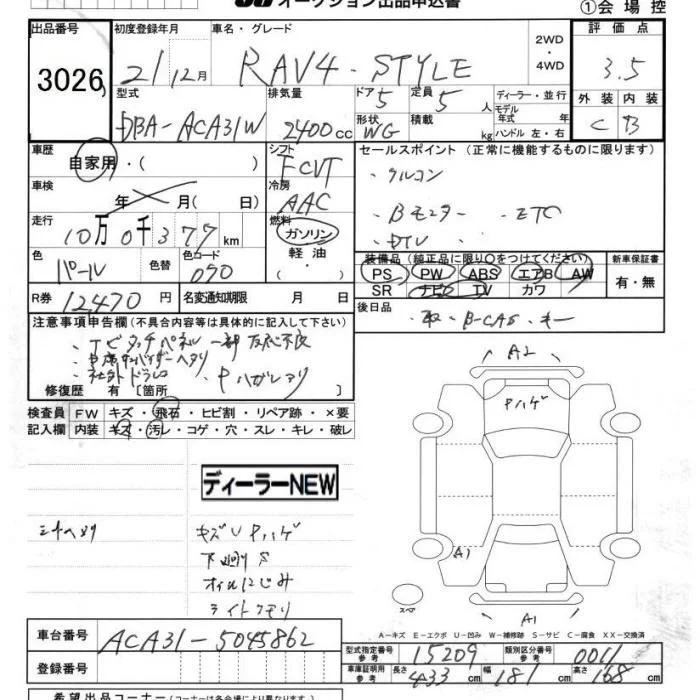 オークション出品申込書
①会場控
出品番号
3026
初度登録年月
21/12月
車名・グレード
RAV4・STYLE
2WD
・
4WD
評価点
3.5
型式
DBA-ACA31W
排気量
2400cc
ドア
5
定員
5人
ディーラー・並行
モデル
年式 年
形状
WG
積載
kg
ハンドル 左・右
外装
内装
C
B
車歴
自家用・( )
シフト
FCVT
セールスポイント(正常に機能するものに限ります)
・アルコン
・Bモニター ・ETC
・DTV
車検
年 月( 日)
冷房
AAC
走行
10万0千377km
燃料
ガソリン
軽油
・( )
色
パール
色替
色コード
070
装備品(純正品に限り○をつけてください)
新車保証書
PS PW ABS エアB AW
SR ナビ TV カワ
有・無
R券
12470円
名変通知期限 月 日
後日品
・取 ・B-CAS ・キー
注意事項申告欄(不具合内容等は具体的に記入して下さい)
・ナビタッチパネル一部反応不良
・社外ドラレコ
修復歴 有〔箇所
検査員
記入欄
FW
キズ・飛石・ヒビ割・リペア跡・×要
内装
キズ・汚レ・コゲ・穴・スレ・キレ・破レ
ディーラーNEW
キズUPハゲ
下廻りS
オイルにじみ
ライトクモリ
A2
Pハゲ
A1
A1
スペア
A-キズ E-エクボ U-凹み W-補修跡 S-サビ C-腐食 XX-交換済
車台番号
ACA31-5045862
登録番号
型式指定番号
参考
15209
類別区分番号
参考
0011
車庫証明用
参考
長さ
433cm
幅
181cm
高さ
168cm
希望出品コーナー(コーナーは各会場により異なります)